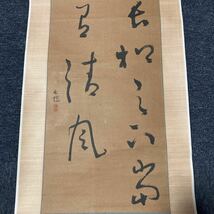 長松之下當
有清風